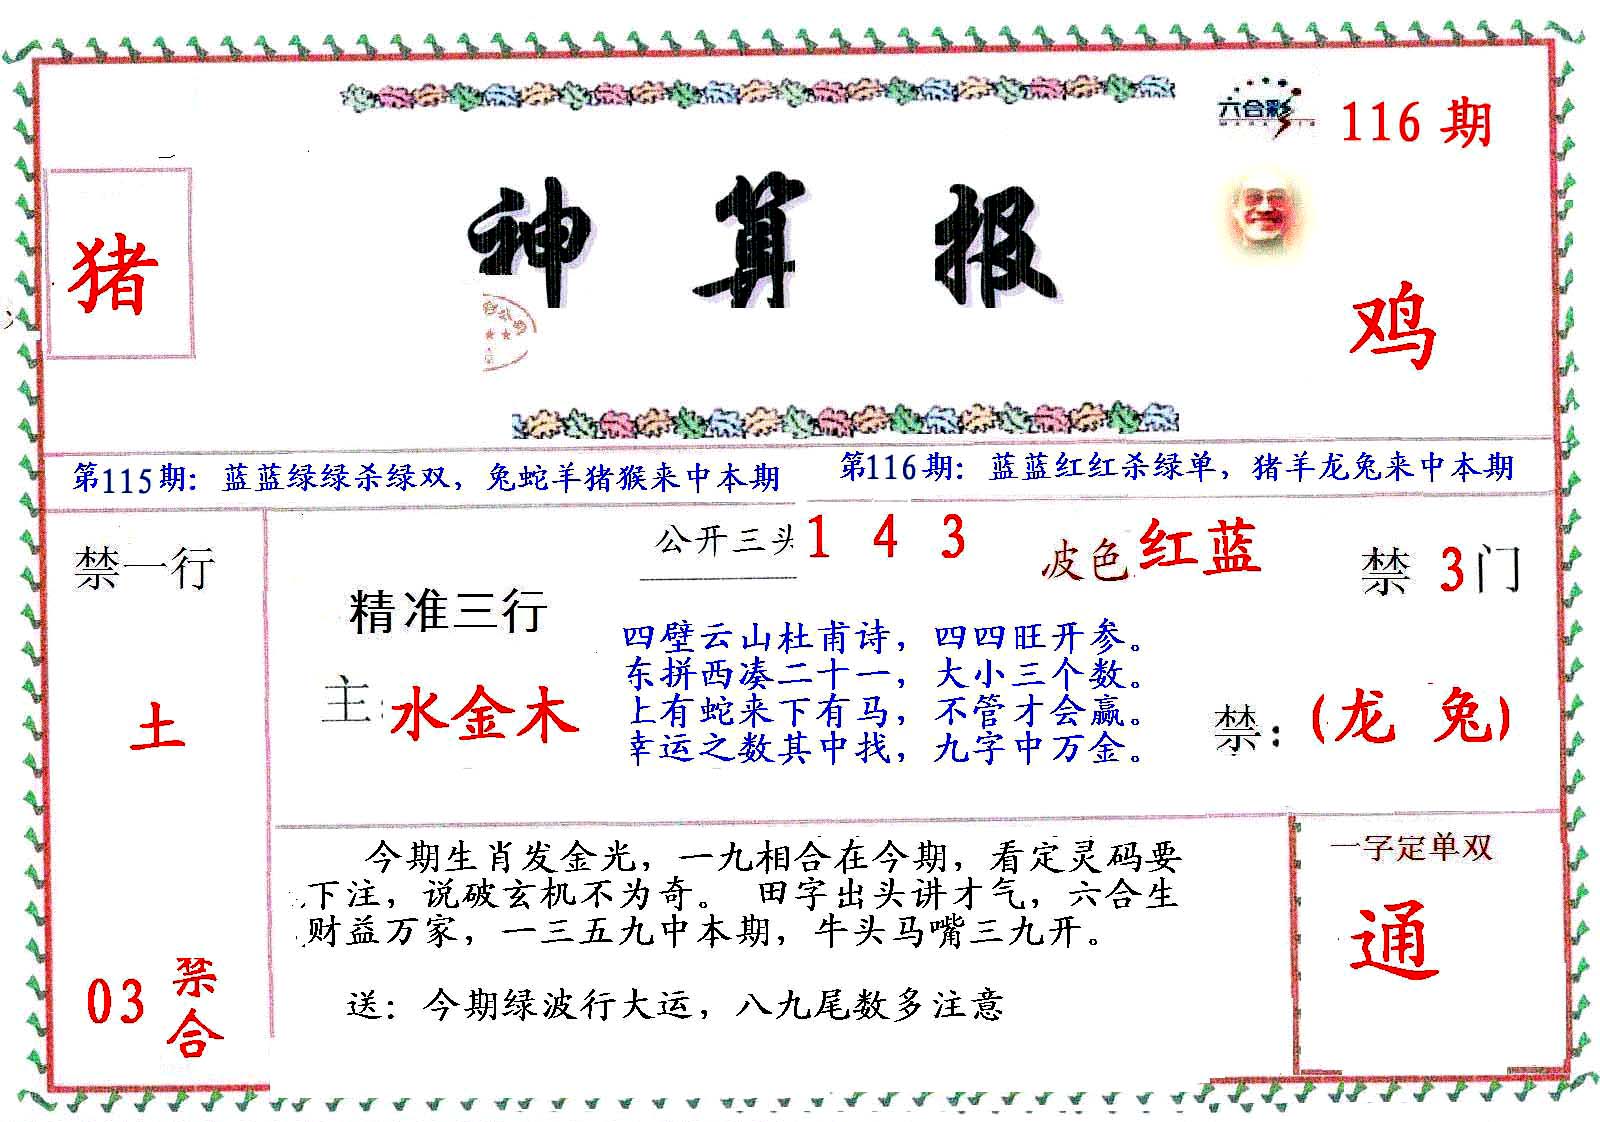 六合彩
116 期
猪
神算报
鸡
第115期：蓝蓝绿绿杀绿双，兔蛇羊猪猴来中本期
第116期：蓝蓝红红杀绿单，猪羊龙兔来中本期
禁一行
土
03 禁合
公开三头 1 4 3
波色 红蓝
禁 3 门
精准三行
主：水金木
四壁云山杜甫诗，四四旺开参。
东拼西凑二十一，大小三个数。
上有蛇来下有马，不管才会赢。
幸运之数其中找，九字中万金。
禁：(龙 兔)
今期生肖发金光，一九相合在今期，看定灵码要
下注，说破玄机不为奇。 田字出头讲才气，六合生
财益万家，一三五九中本期，牛头马嘴三九开。
送：今期绿波行大运，八九尾数多注意
一字定单双
通